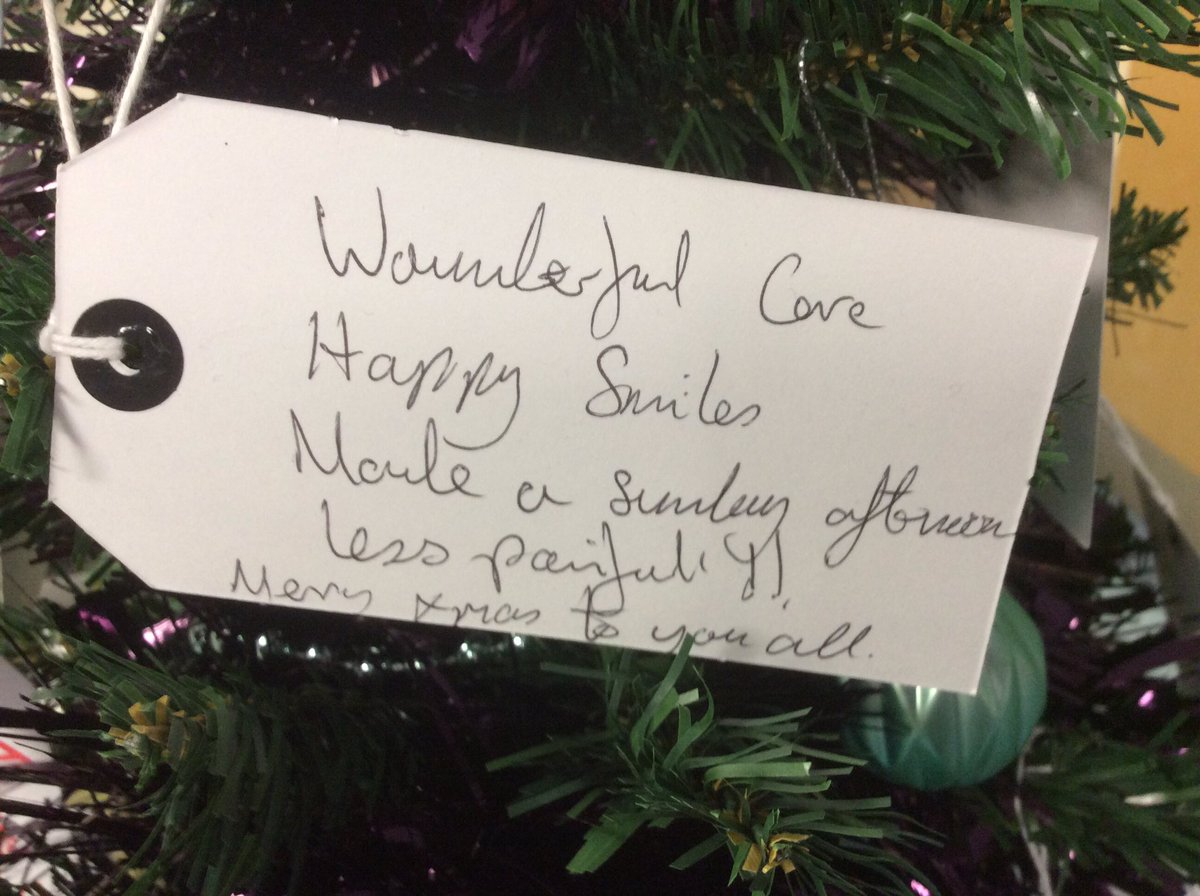 Wounderful Care
Happy Smiles
Made a Sunday afternoon
less painful!!!
Merry Xmas to you all.